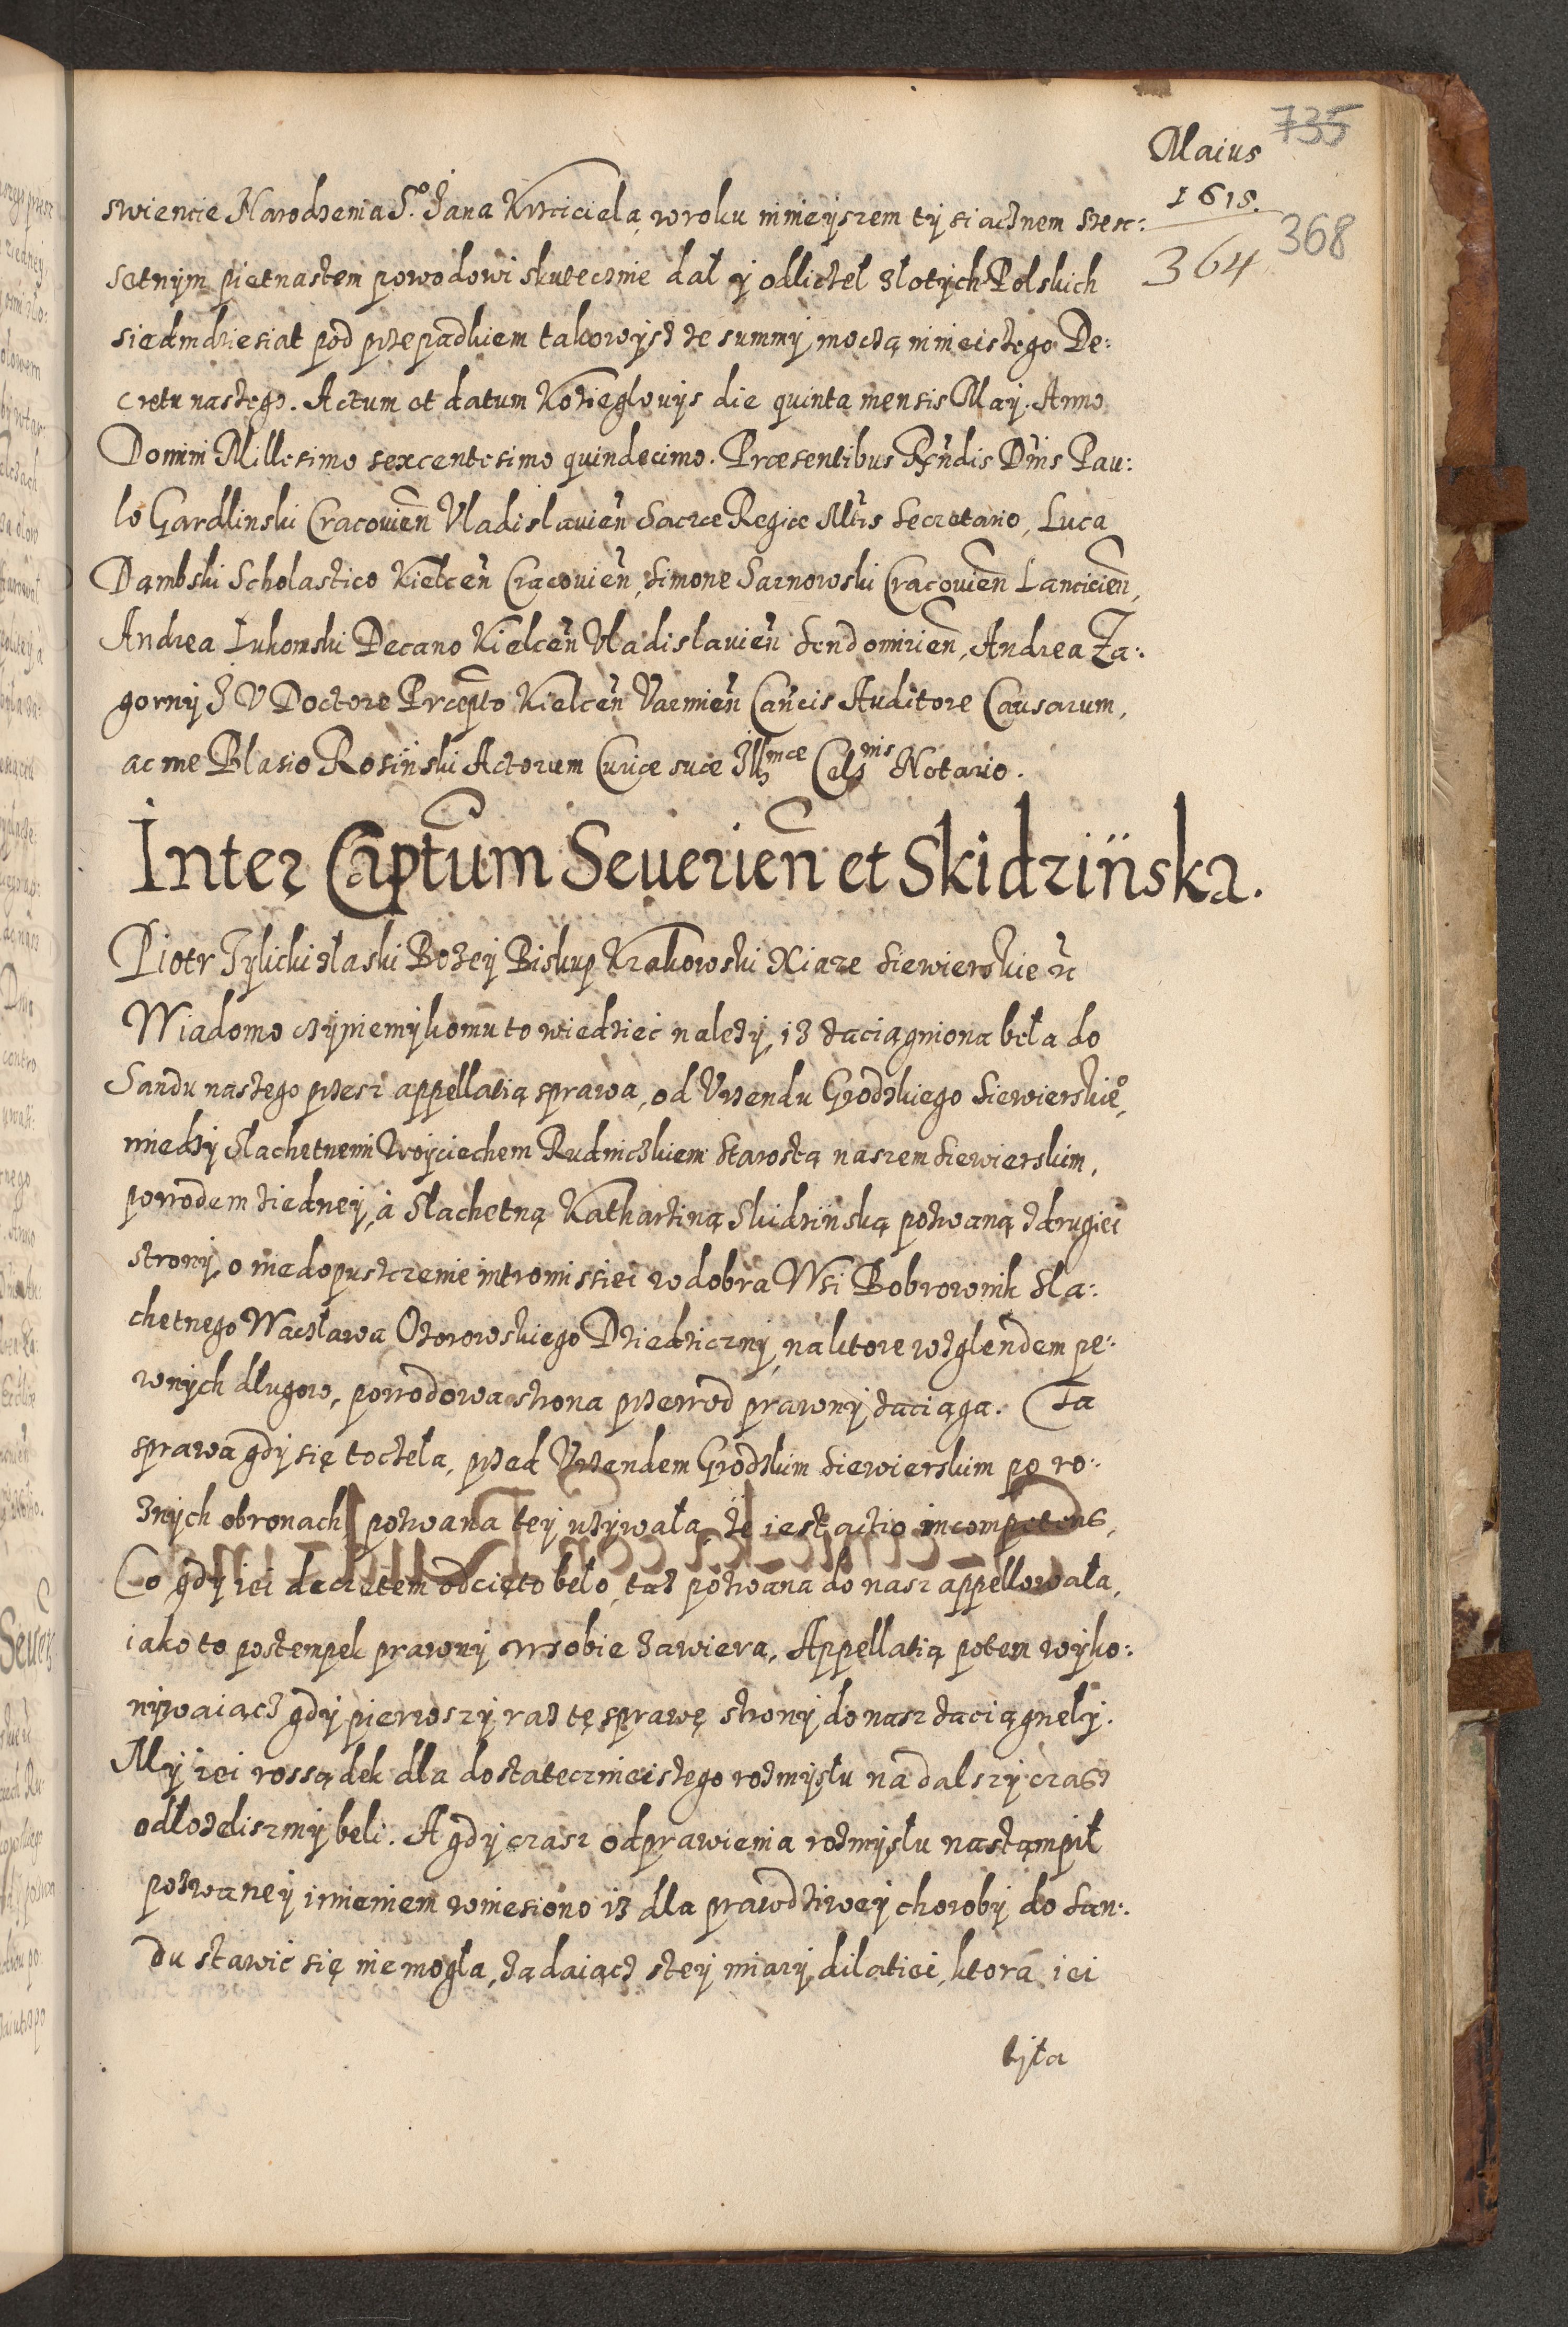 735
Maius
1615.
364
368
swiencie Narodzenia S.º Jana Krzciciela, w roku ninieyszem tysiacznem szesc:
setnym pietnastem powodowi skutecznie dał y odliczeł złotych Polskich
siedmdziesiat pod przepadkiem takowysz te summy, moczą ninieiszego De:
cretu naszego. Actum et datum Kozieglouys die quinta mensis Maij. Anno
Domini Millesimo sexcentesimo quindecimo. Præsentibus Rñdis Dñis Pau:
lo Gardlinski Cracovien̄ Vladislavien̄ Sacræ Regiæ Mtis Secretario, Luca
Dambski Scholastico Kielcen̄ Cracovien̄, Simone Sarnowski Cracovien̄ Lancicien̄,
Andrea Lukomski Decano Kielcen̄ Vladislavien̄ Sendomirien̄, Andrea Za:
gorny J V Doctore Præpto Kielcen̄ Varmien̄ Cañcis Auditore Causarum,
ac me Blasio Rosiński Actorum Curiæ suæ Illmæ Celsnis Notario.
Inter Captum Severien̄ et Skidzińska.
Piotr Tylicki z łaski Bozey Biskup Krakowski Xiaze Siewierskie rc
Wiadomo czyniemy komu to wiedziec nalezy, iz zaciągniona beła do
Sandu naszego przesz appellatią sprawa, od Urzendu Grodzkiego Siewierskieº,
miedzy Slachetnemi Woyciechem Rudniczkiem Starostą naszem Siewierskim,
powodem z iedney, à Slachetną Katharziną Skidzińską pozwaną z drugiei
strony, o niedopuszczenie intromissiei w dobra Wsi Bobrownik Sla:
chetnego Wacława Ozorowskiego Dziedziczny, na ktore wzglendem pe:
wnych długow, powodowa strona przewod prawny zaciąga. Ta
sprawa gdy się toczeła, przed Urzendem Grodzkim Siewierskim po ro:
znych obronach pozwana tey uzywała, ze iest actio incompetens,
Co gdy iei decretem odcięto beło, taz pozwana do nasz appellowała,
iako to postempek prawny w sobie zawiera. Appellatią potem wyko:
nywaiącz gdy pierwszy raz tę sprawę strony do nasz zaciągnely.
My iei rossądek dla dostateczneiszego rozmysłu na dalszy czasz
odłozeliszmy beli. A gdy czasz odprawienia rozmysłu nastąmpił
pozwaney imieniem wniesiono iz dla prawdziwey choroby do San:
du stawic się nie mogła, ządaiącz z tey miary dilatiei, ktora iei
była